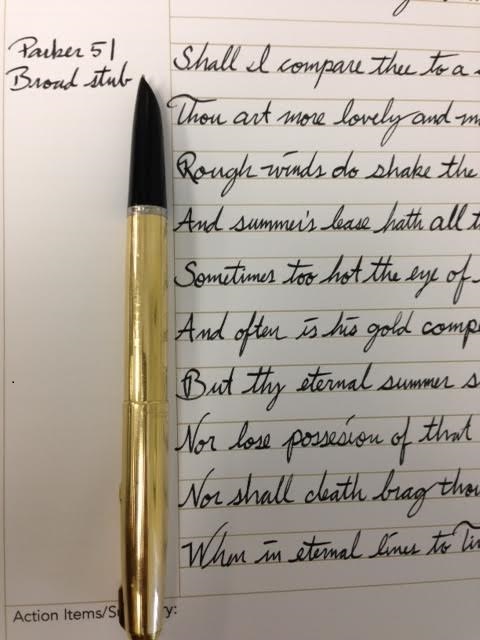 Parker 51
Broad stub
Shall I compare thee to a
Thou art more lovely and
Rough winds do shake the
And summer's lease hath all
Sometimes too hot the eye of
And often is his gold
But thy eternal summer
Nor lose possesion of that
Nor shall death brag
When in eternal lines to
Action Items/